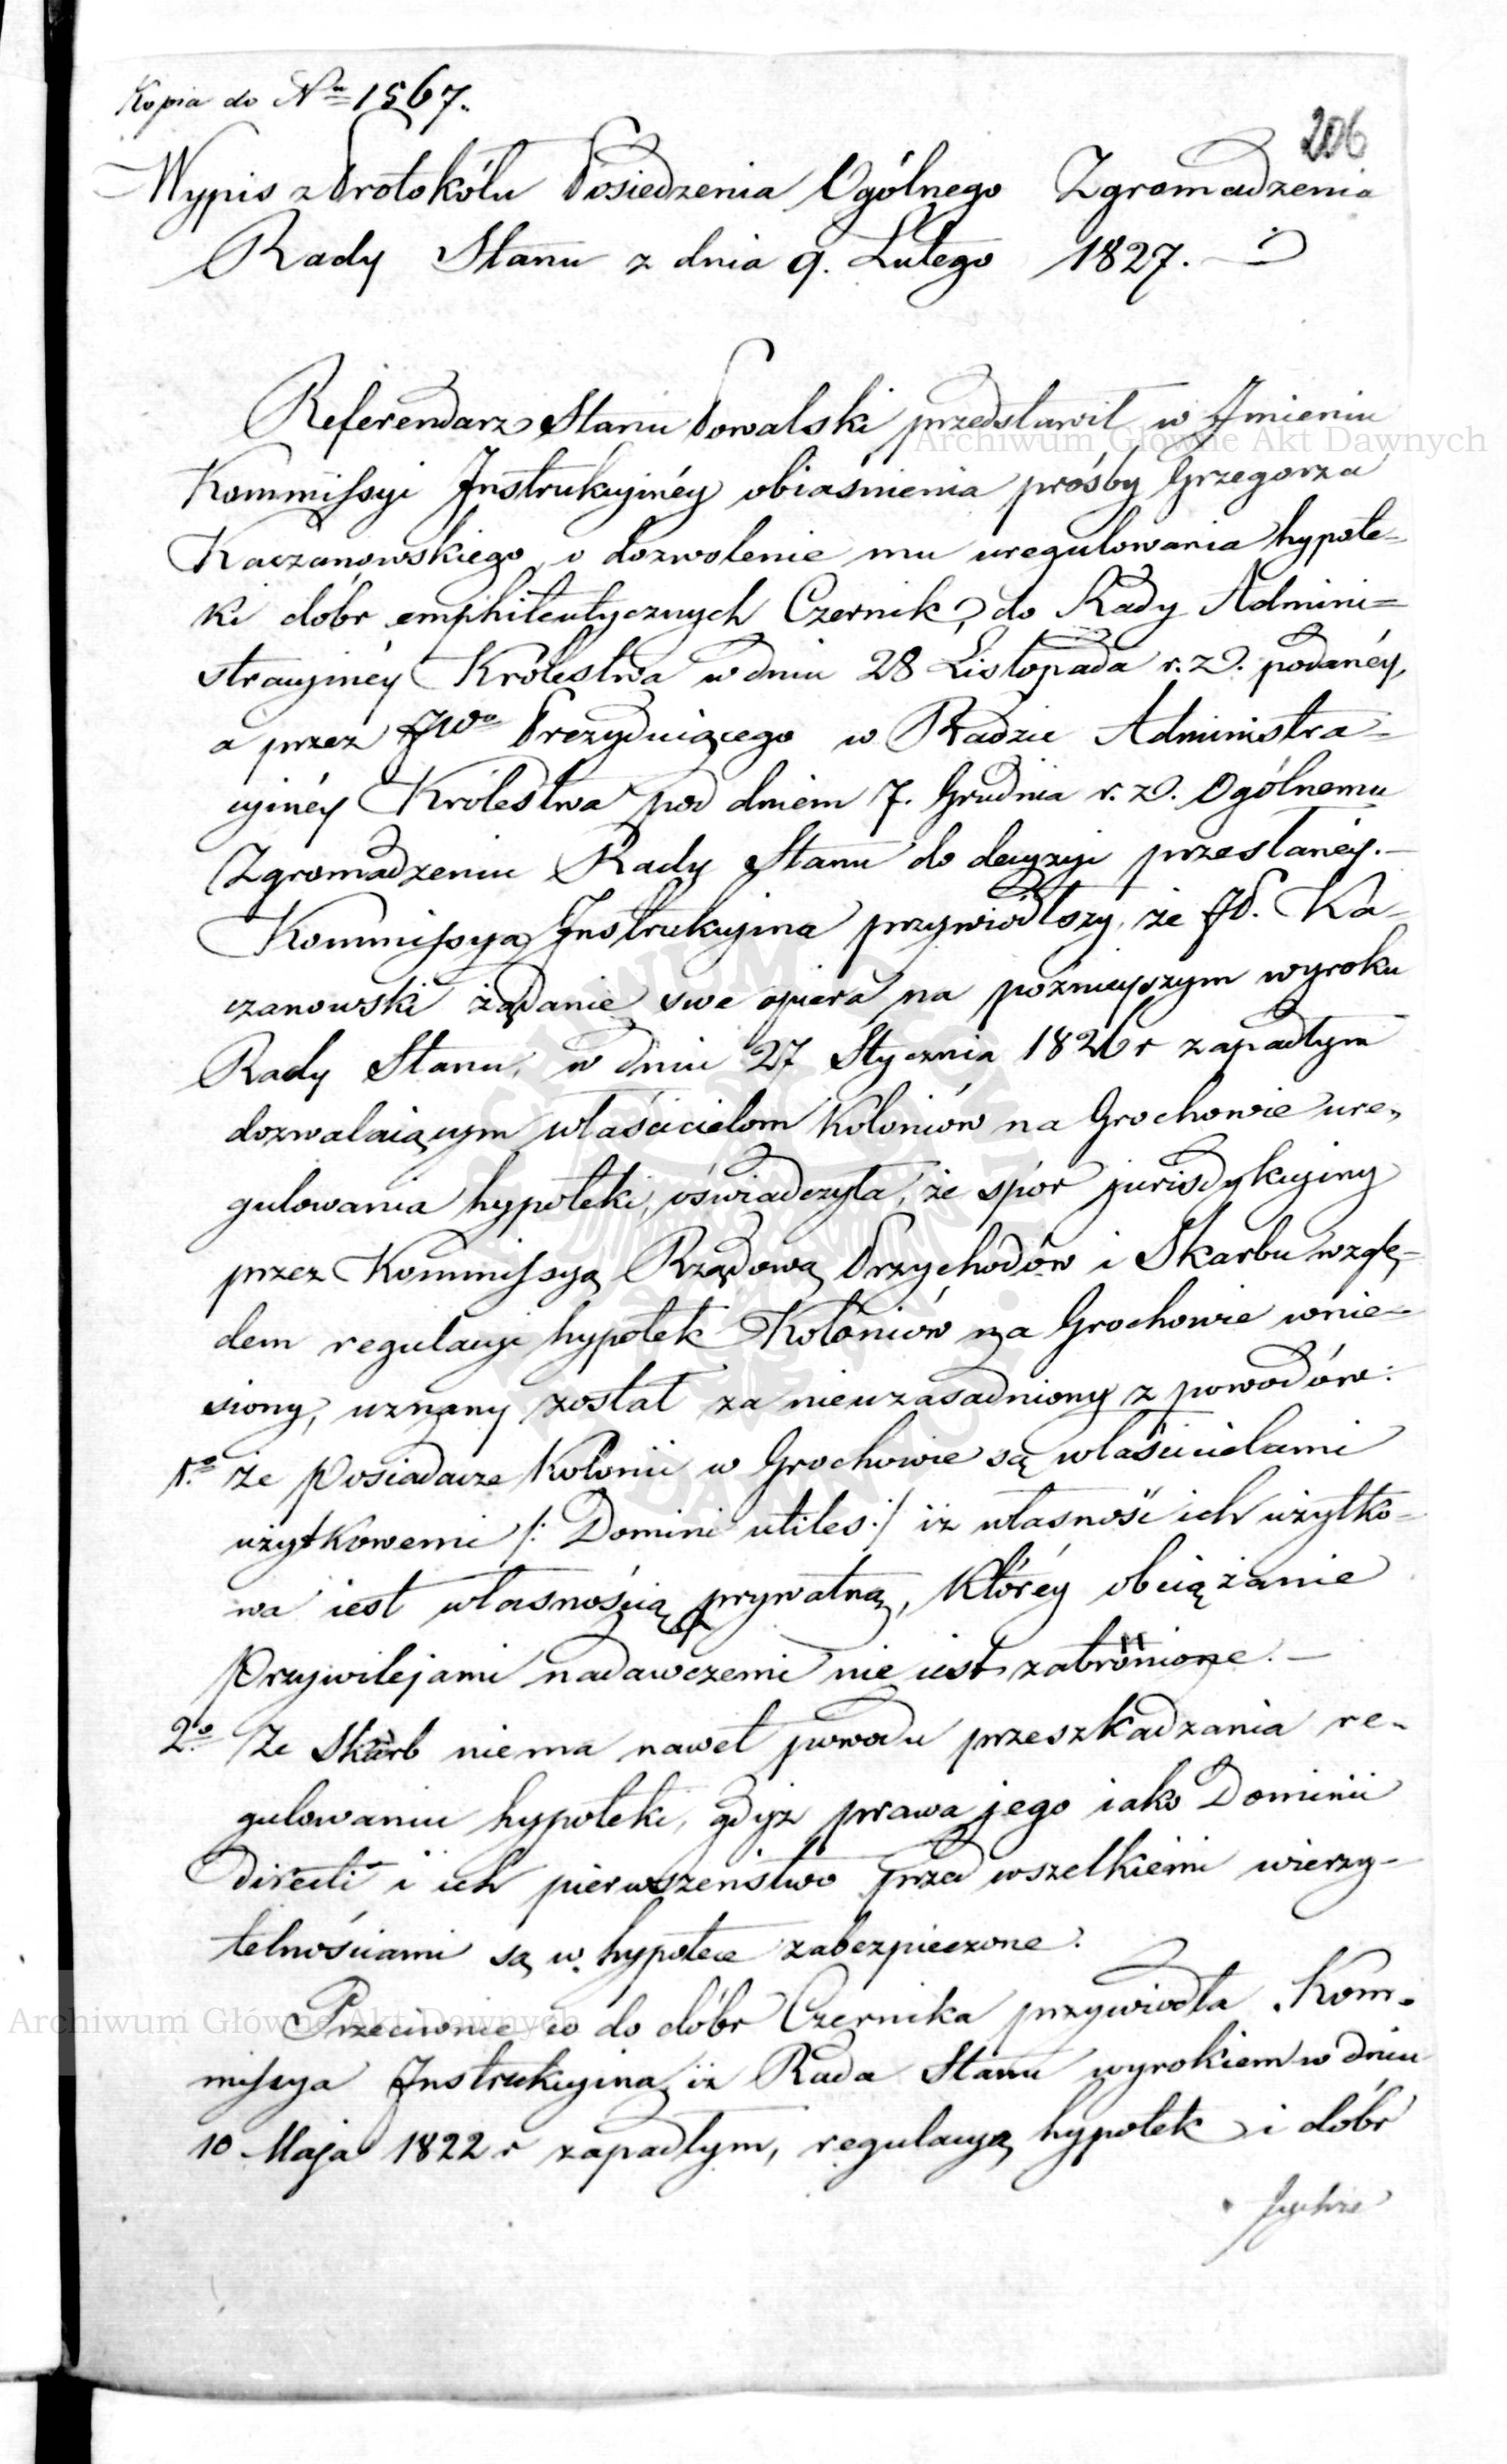 Kopia do Nru 1567.
206
Wypis z Protokółu Posiedzenia Ogólnego Zgromadzenia
Rady Stanu z dnia 9. Lutego 1827.
Referendarz Stanu Powalski przedstawił w Jmieniu
Kommissyi Jnstrukcyinéy obiaśnienia prośby Grzegorza
Kaczanowskiego, o dozwolenie mu uregulowania hypote-
ki dóbr emphiteutycznych Czernik, do Rady Admini=
stracyinéy Królestwa w dniu 28 Listopada r. z. podanéy,
a przez JWo Prezyduiącego w Radzie Administra=
cyinéy Królestwa pod dniem 7. Grudnia r. z. Ogólnemu
Zgromadzeniu Rady Stanu do decyzyi przesłanéy.-
Kommissya Jnstrukcyina przywiódłszy, że JP. Ka-
czanowski żądanie swe opiera na poźnieyszym wyroku
Rady Stanu, w dniu 27 Stycznia 1826 r zapadłym
dozwalaiącym właścicielom Koloniów na Grochowie ure-
gulowania hypoteki, oświadczyła, że spór jurisdykcyiny
przez Kommissyą Rządową Przychodów i Skarbu wzglę-
dem regulacyi hypotek Koloniów na Grochowie wnie-
siony, uznany został za nieuzasadniony z powodów:
1.o że Posiadacze Kolonii w Grochowie są właścicielami
użytkowemi /: Domini utiles :/ iż własność ich użytko-
wa iest własnością prywatną, któréy obciążanie
Przywilejami nadawczemi nie iest zabronione. -
2.o Że Skarb niema nawet powodu przeszkadzania re-
gulowaniu hypoteki, gdyż prawa jego iako Dominii
Directi i ich pierwszeństwo przed wszelkiemi wierzy-
telnościami są w hypotece zabezpieczone.
Przeciwnie co do dóbr Czernika przywiodła Kom-
missya Jnstrukcyina, iż Rada Stanu wyrokiem w dniu
10 Maja 1822 r zapadłym, regulacyą hypotek i dóbr
Archiwum Główne Akt Dawnych
Archiwum Główne Akt Dawnych